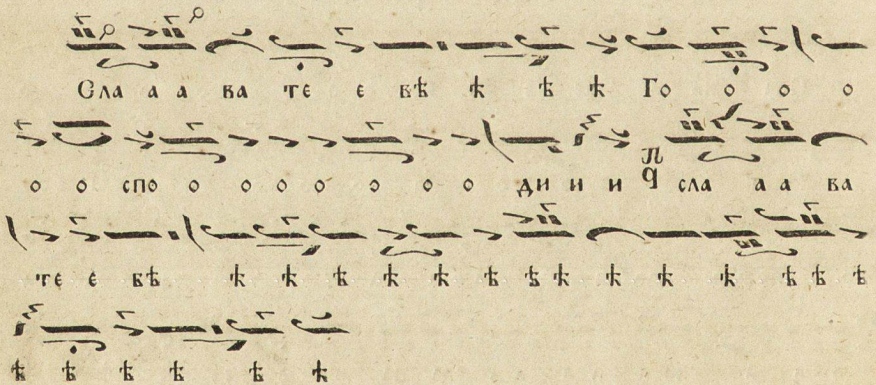 Сла а а ва те е вѣ ѣ ѣ ѣ Го о о о о
о о спо о о о о о о о ди и и сла а а ва
те е вѣ ѣ ѣ ѣ ѣ ѣ ѣ ѣ ѣ ѣ ѣ ѣ ѣ ѣ ѣ
ѣ ѣ ѣ ѣ ѣ ѣ